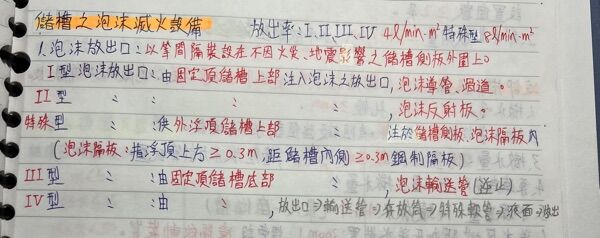 儲槽之泡沫滅火設備 放出率：I、II、III、IV 4ℓ/min·m² 特殊型 8ℓ/min·m²
1.泡沫放出口：以等間隔裝設在不因火災、地震影響之儲槽側板外圍上。
I型泡沫放出口：由固定頂儲槽上部注入泡沫之放出口，泡沫導管、過道。
II型 〃 〃 ：〃 〃 〃 ，泡沫反射板。
特殊型 〃 ：供外浮頂儲槽上部 注於儲槽側板、泡沫隔板內
（泡沫隔板：指浮頂上方≥0.3m，距儲槽內側≥0.3m鋼制隔板）
III型 〃 〃 ：由固定頂儲槽底部 〃 ，泡沫輸送管（逆止）
IV型 〃 〃 ：由 〃 〃 ，放出口→輸送管→存放筒→特殊軟管→液面→放出